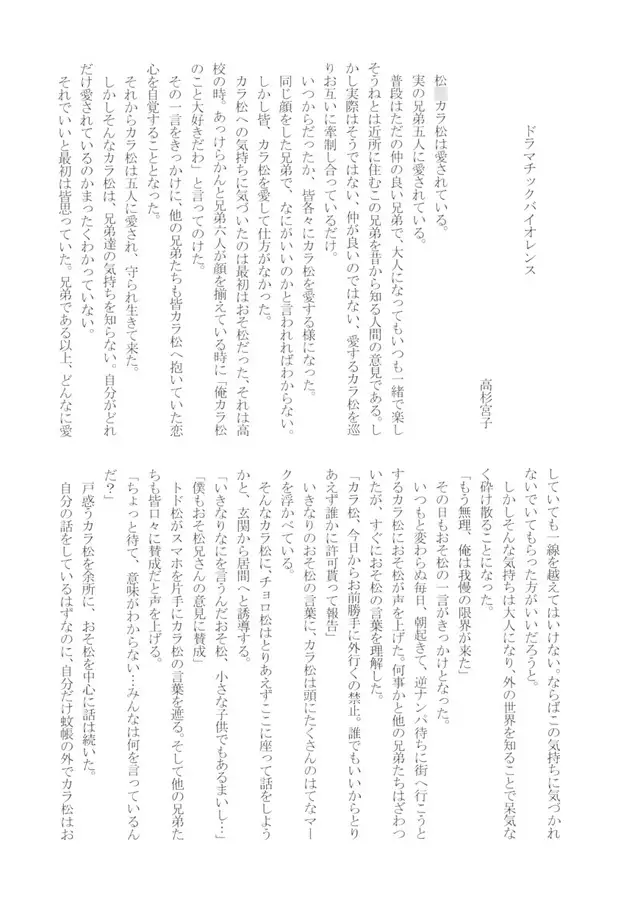 ドラマチックバイオレンス
高杉宮子
松 カラ松は愛されている。
実の兄弟五人に愛されている。
普段はただの仲の良い兄弟で、大人になってもいつも一緒で楽し
そうねとは近所に住むこの兄弟を昔から知る人間の意見である。し
かし実際はそうではない、仲が良いのではない、愛するカラ松を巡
りお互いに牽制し合っているだけ。
いつからだったか、皆各々にカラ松を愛する様になった。
同じ顔をした兄弟で、なにがいいのかと言われればわからない。
しかし皆、カラ松を愛して仕方がなかった。
カラ松への気持ちに気づいたのは最初はおそ松だった、それは高
校の時。あっけらかんと兄弟六人が顔を揃えている時に「俺カラ松
のこと大好きだわ」と言ってのけた。
その一言をきっかけに、他の兄弟たちも皆カラ松へ抱いていた恋
心を自覚することとなった。
それからカラ松は五人に愛され、守られ生きて来た。
しかしそんなカラ松は、兄弟達の気持ちを知らない。自分がどれ
だけ愛されているのかまったくわかっていない。
それでいいと最初は皆思っていた。兄弟である以上、どんなに愛
していても一線を越えてはいけない。ならばこの気持ちに気づかれ
ないでいてもらった方がいいだろうと。
しかしそんな気持ちは大人になり、外の世界を知ることで呆気な
く砕け散ることになった。
「もう無理、俺は我慢の限界が来た」
その日もおそ松の一言がきっかけとなった。
いつもと変わらぬ毎日、朝起きて、逆ナンパ待ちに街へ行こうと
するカラ松におそ松が声を上げた。何事かと他の兄弟たちはざわつ
いたが、すぐにおそ松の言葉を理解した。
「カラ松、今日からお前勝手に外行くの禁止。誰でもいいからとり
あえず誰かに許可貰って報告」
いきなりのおそ松の言葉に、カラ松は頭にたくさんのはてなマー
クを浮かべている。
そんなカラ松に、チョロ松はとりあえずここに座って話をしよう
かと、玄関から居間へと誘導する。
「いきなりなにを言うんだおそ松、小さな子供でもあるまいし…」
「僕もおそ松兄さんの意見に賛成」
トド松がスマホを片手にカラ松の言葉を遮る。そして他の兄弟た
ちも皆口々に賛成だと声を上げる。
「ちょっと待て、意味がわからない…みんなは何を言っているん
だ？」
戸惑うカラ松を余所に、おそ松を中心に話は続いた。
自分の話をしているはずなのに、自分だけ蚊帳の外でカラ松はお